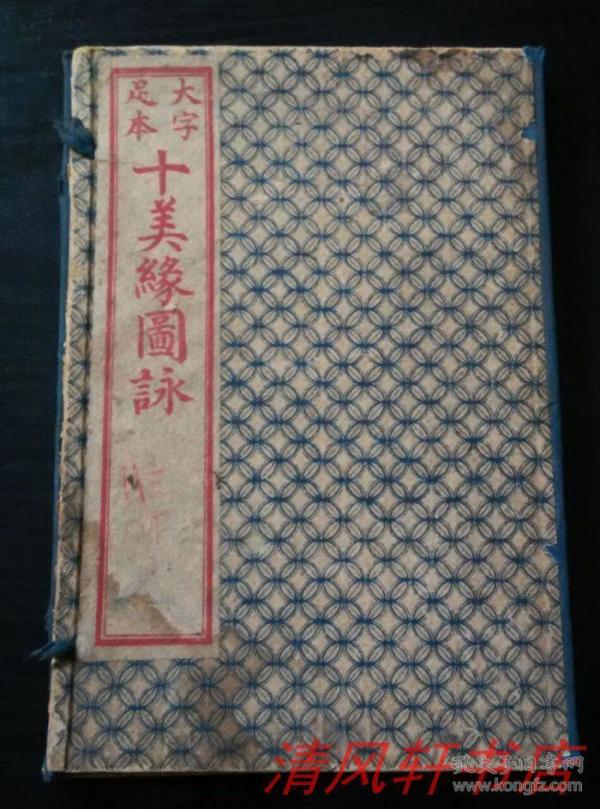 大字
足本
十美緣圖詠
清风轩书店
孔夫子旧书网
www.kongfz.com